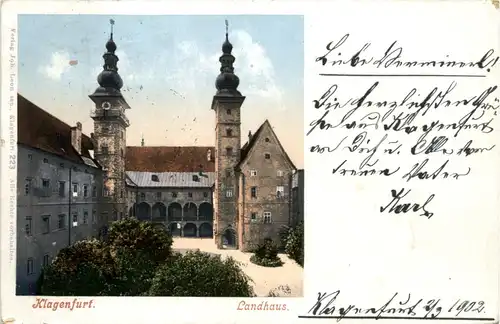 Verlag Joh. Leon sen. Klagenfurt. 223. Alle Rechte vorbehalten.
Klagenfurt.
Landhaus.
Liebe
Die herzlichsten Grü-
ße aus Klagenfurt
an Dich u. Alle von
treuen Vater
Karl
Klagenfurt 2/9 1902.